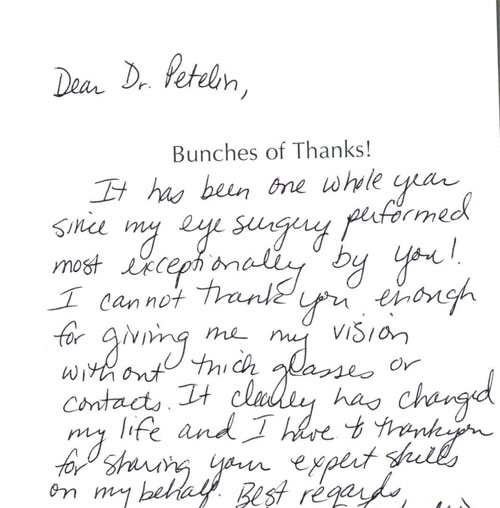 Dear Dr. Petelin,
Bunches of Thanks!
It has been one whole year
since my eye surgery performed
most exceptionally by you!
I cannot thank you enough
for giving me my vision
without thick glasses or
contacts. It clearly has changed
my life and I have to thank you
for sharing your expert skills
on my behalf. Best regards,